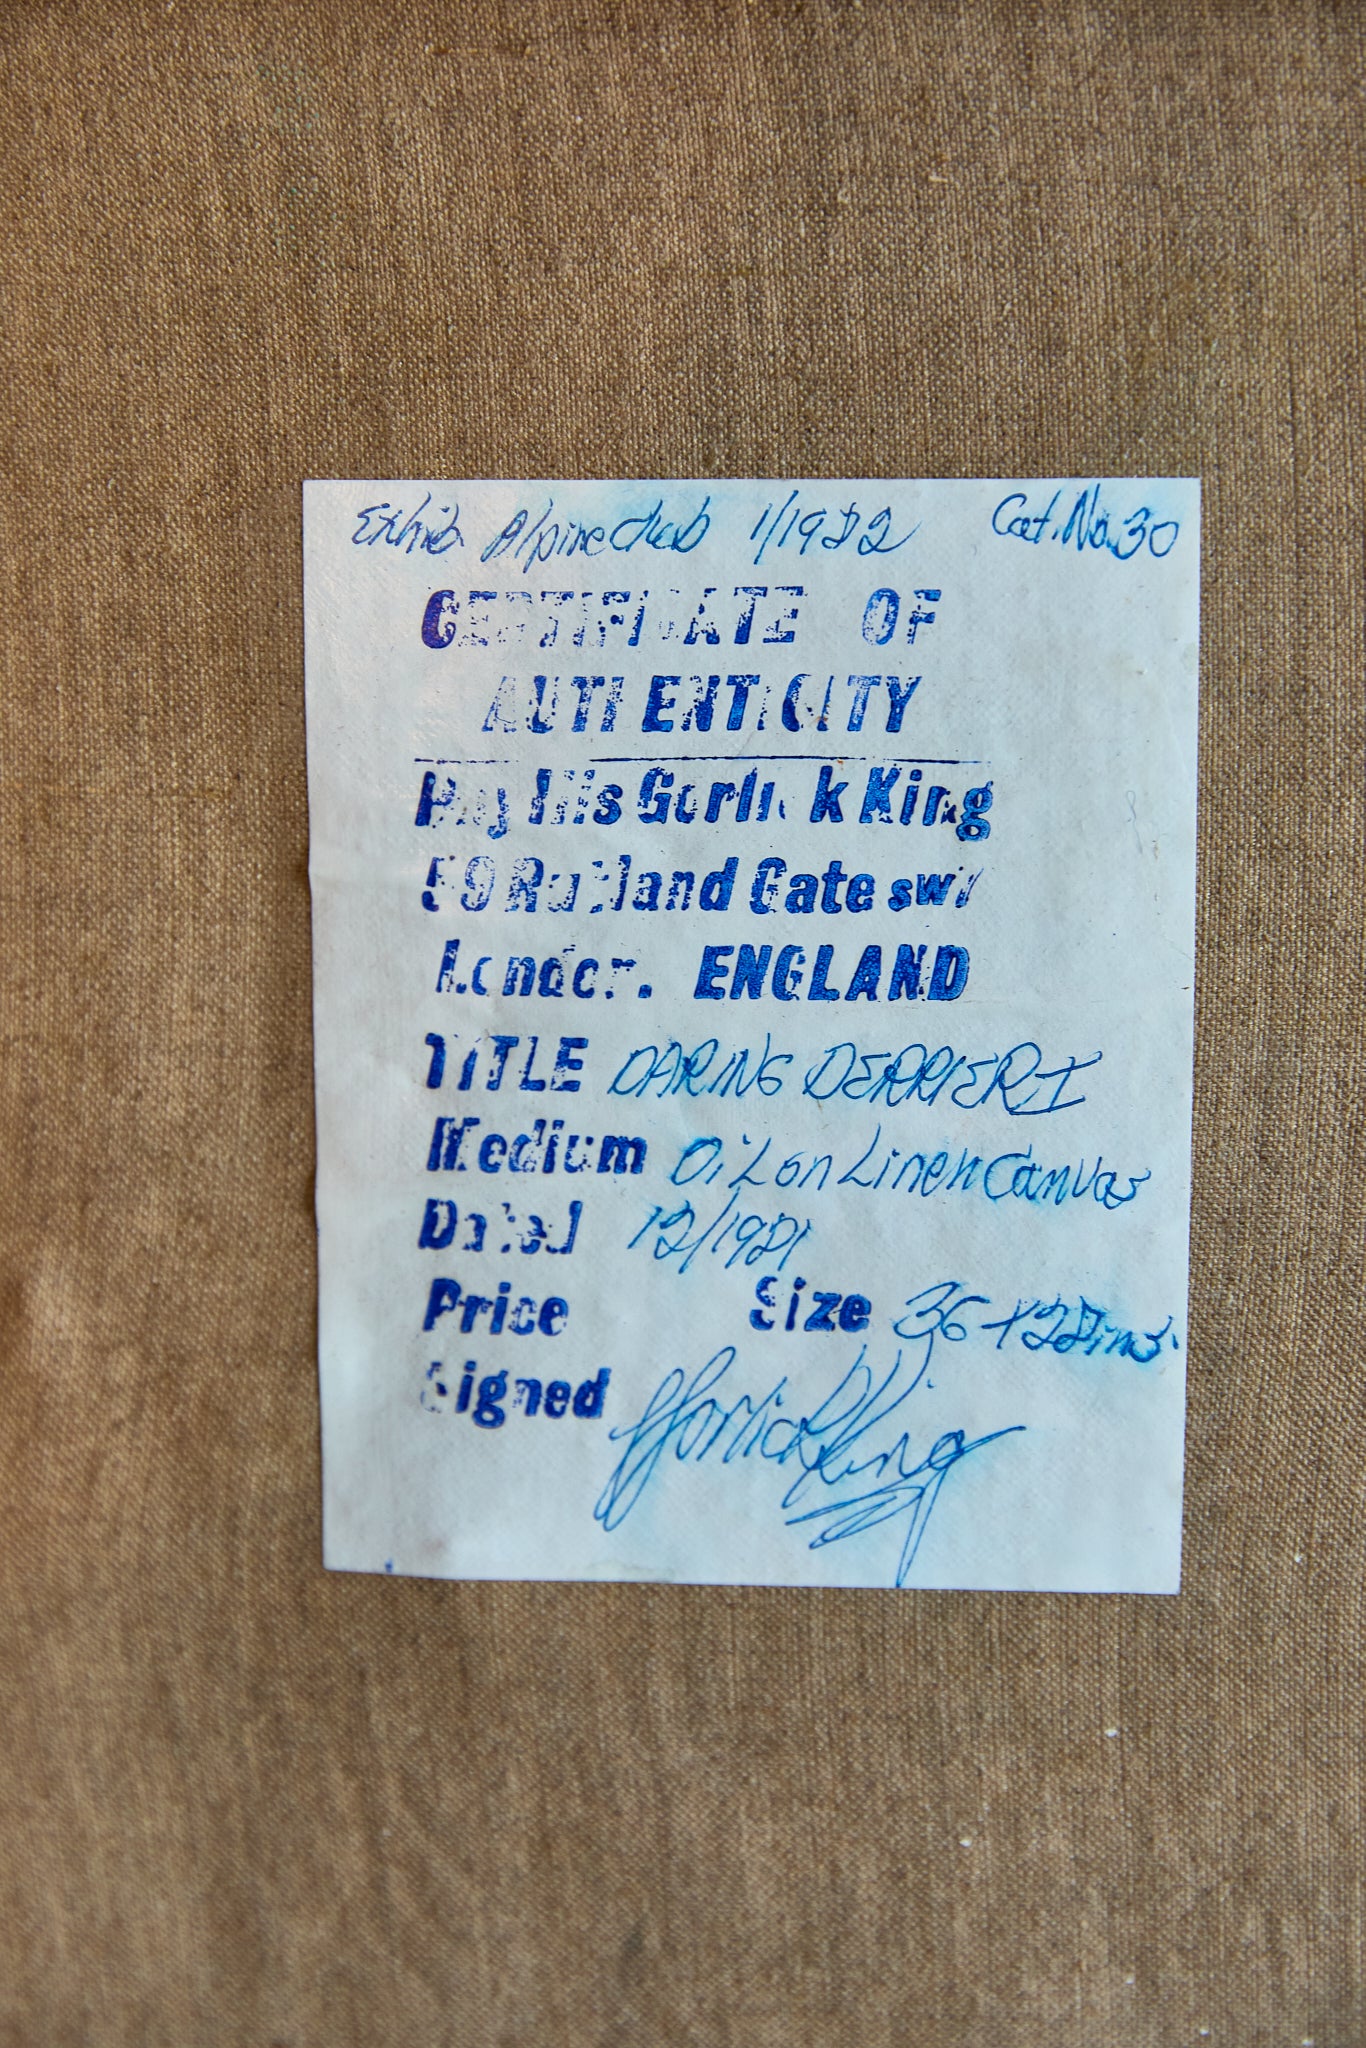 Exhib. Alpine Club 1/1982 Cat. No. 30
CERTIFICATE OF
AUTHENTICITY
Phyllis Gorlick King
59 Rutland Gate sw7
London. ENGLAND
TITLE DARING DERRIER I
Medium Oil on Linen Canvas
Dated 12/1981
Price Size 36 x 28 ins.
Signed Gorlick King